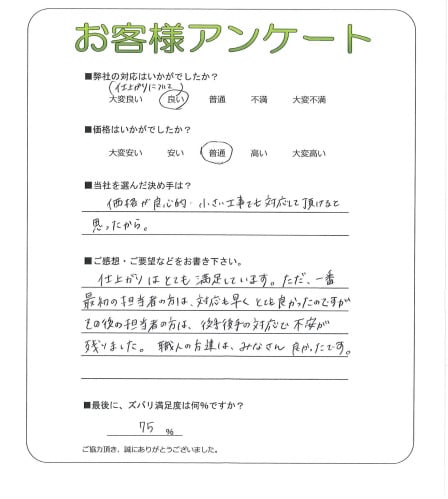 お客様アンケート
■弊社の対応はいかがでしたか?
(仕上がりについて)
大変良い 良い 普通 不満 大変不満
■価格はいかがでしたか?
大変安い 安い 普通 高い 大変高い
■当社を選んだ決め手は?
価格が良心的・小さい工事でも対応して頂けると
思ったから。
■ご感想・ご要望などをお書き下さい。
仕上がりはとても満足しています。ただ、一番
最初の担当者の方は、対応も早くとても良かったのですが
その後の担当者の方は、後手後手の対応で不安が
残りました。職人の方達は、みなさん良かったです。
■最後に、ズバリ満足度は何%ですか?
75 %
ご協力頂き、誠にありがとうございました。